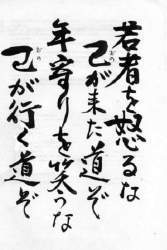 若者を怒るな
己が来た道ぞ
年寄りを笑うな
己が行く道ぞ